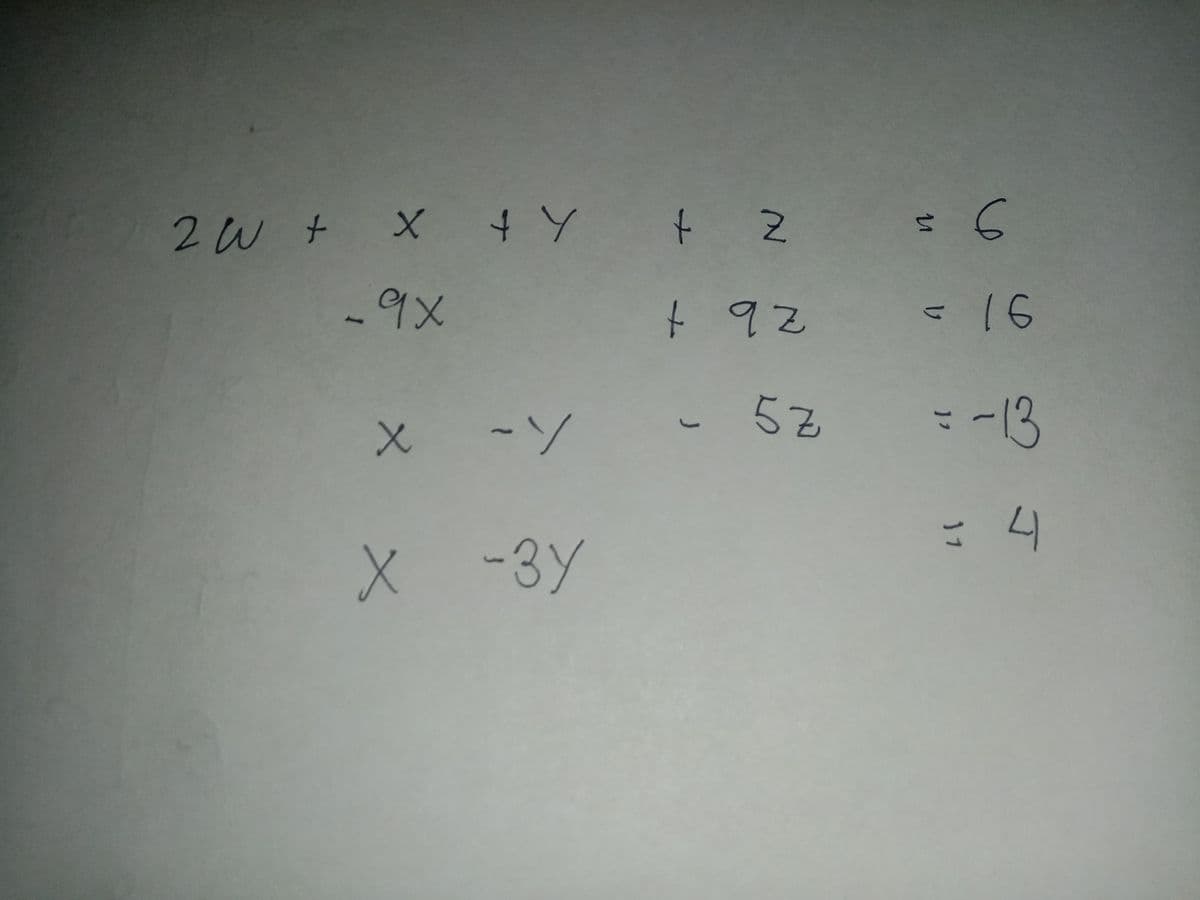 2W + X + Y + Z = 6
- 9X + 9Z = 16
X - Y - 5Z = -13
X - 3Y = 4